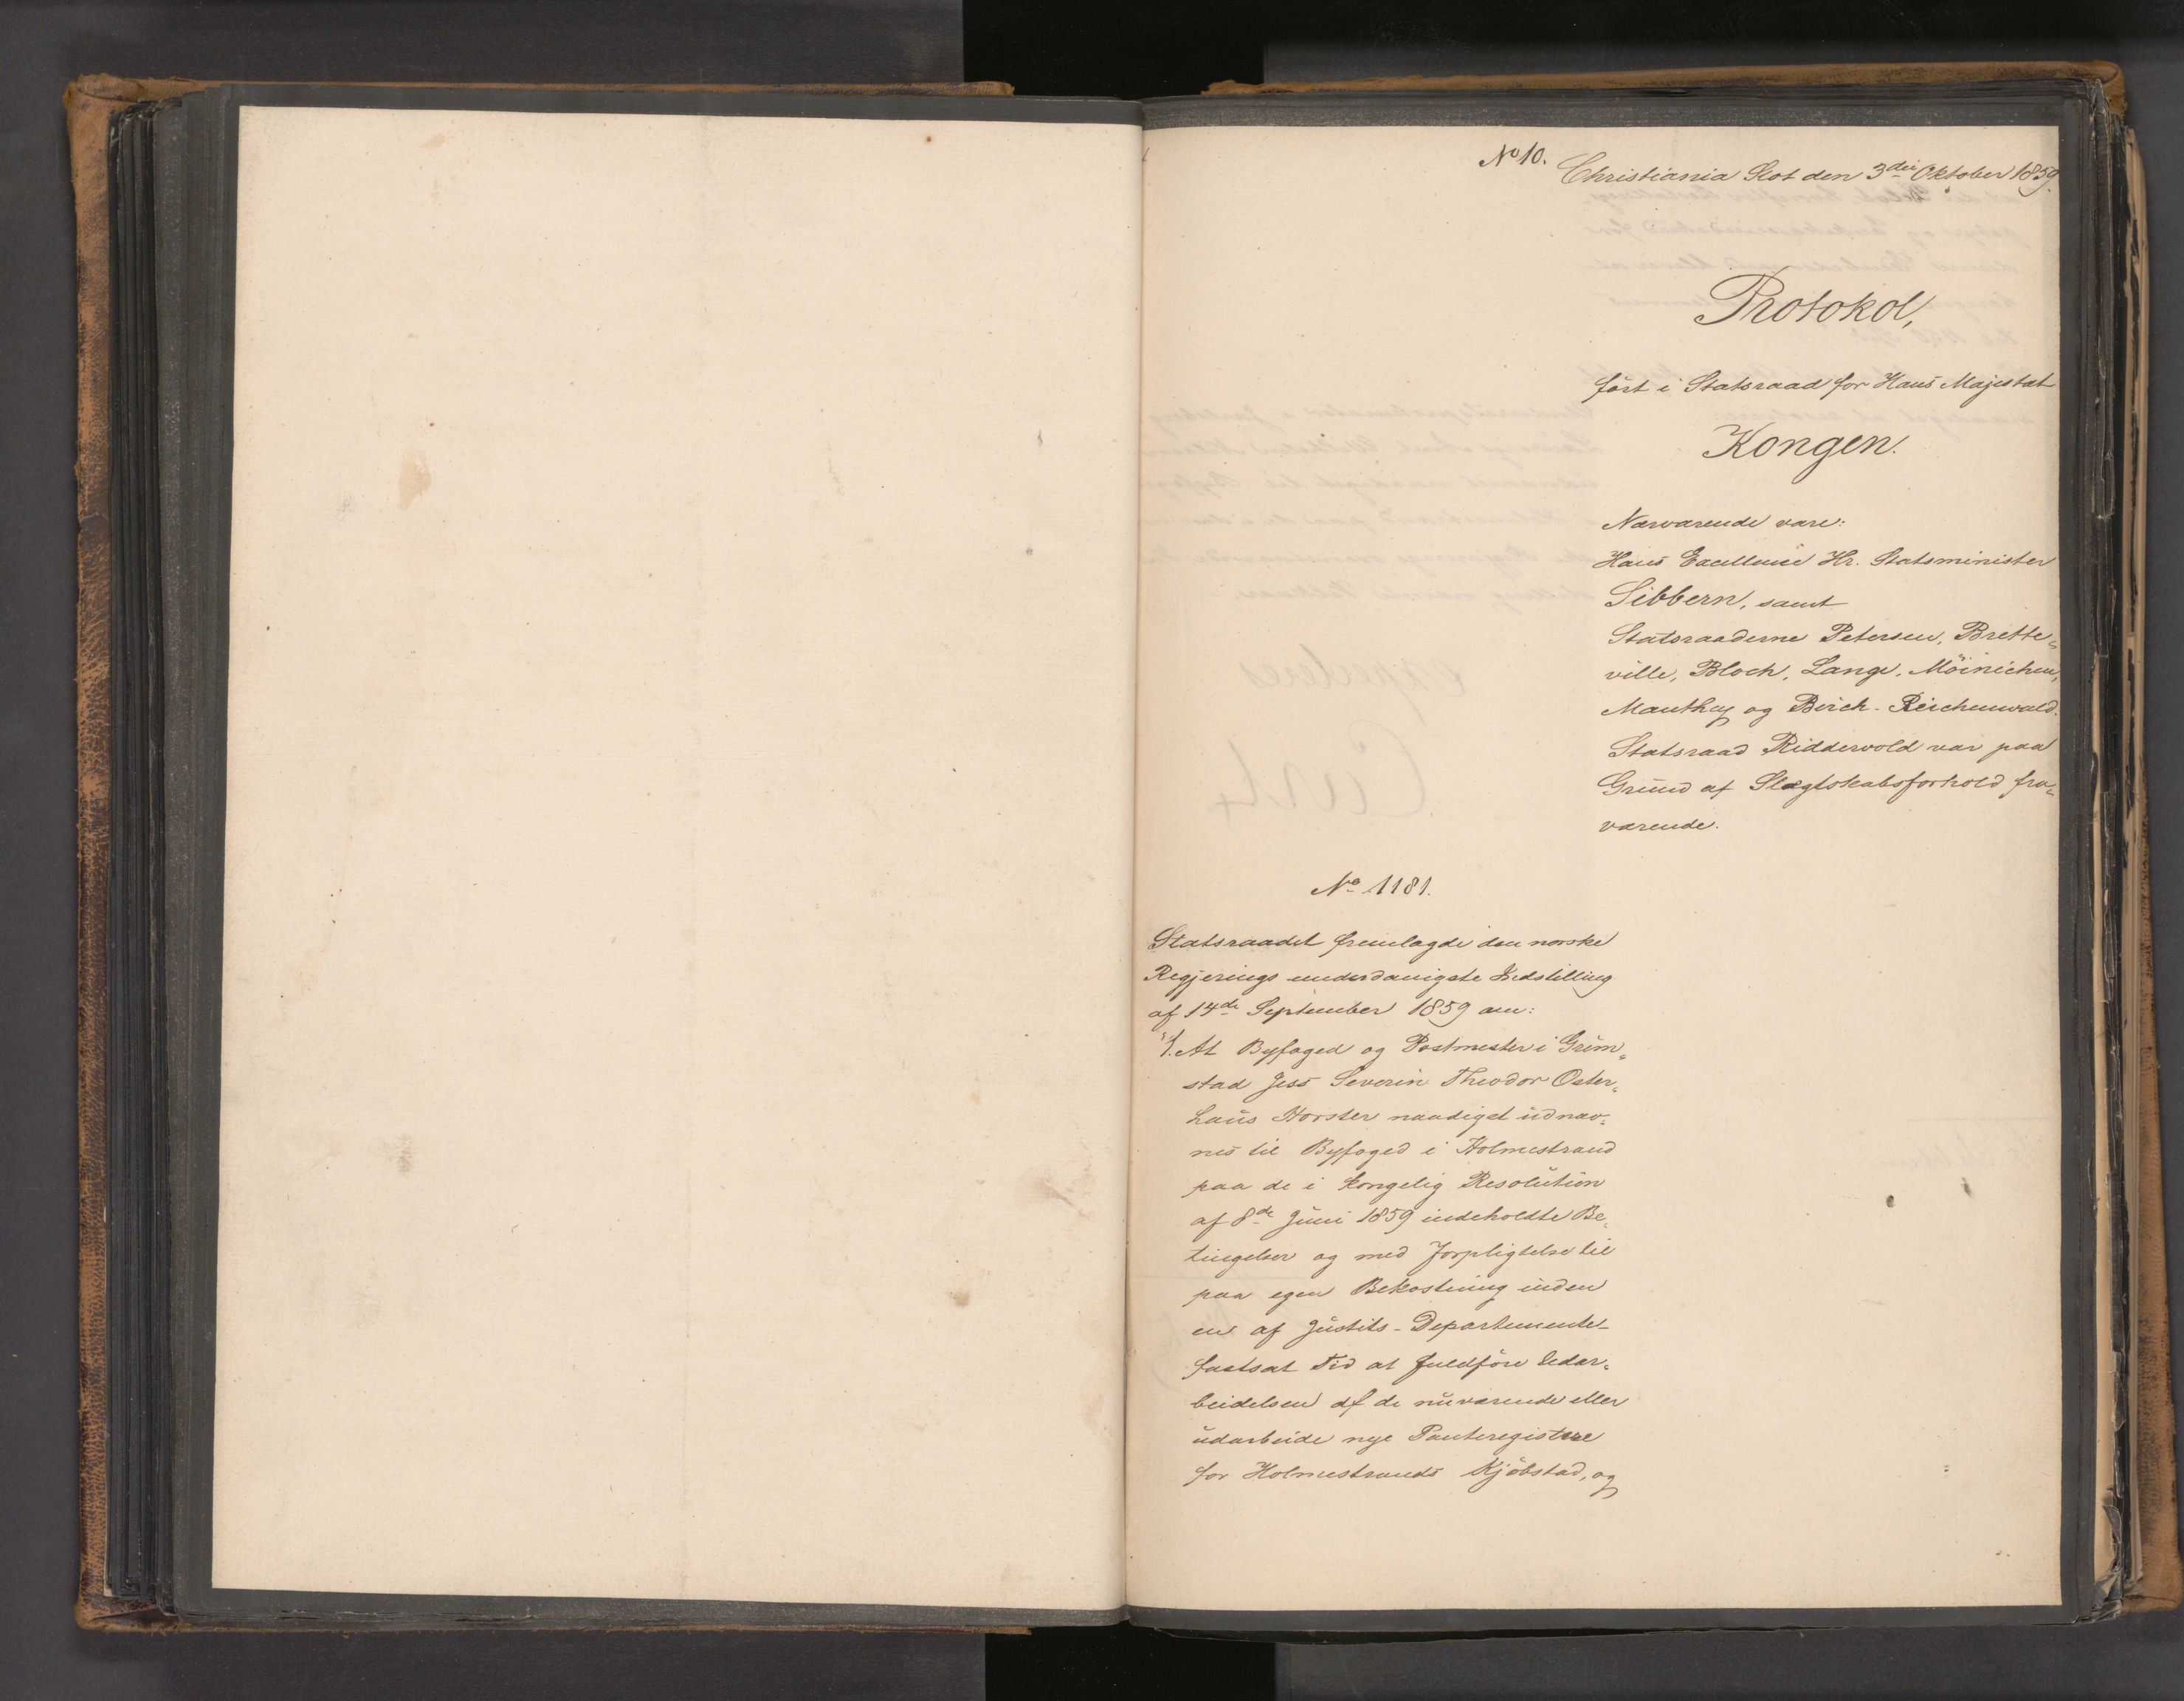 No 10.
Christiania Slot den 3die Oktober 1859.
Protokol,
ført i Statsraad for Hans Majestæt
Kongen.
Nærværende vare:
Hans Excellence Hr. Statsminister
Sibbern, samt
Statsraaderne Petersen, Brette-
ville, Bloch, Lange, Möinichen,
Manthey og Birch-Reichenwald.
Statsraad Riddervold var paa
Grund af Slægtskabsforhold fra-
værende.
No 1181.
Statsraadet fremlagde den norske
Regjerings underdanigste Indstilling
af 14de September 1859 om:
"1. At Byfoged og Postmester i Grim-
stad Jess Severin Theodor Oster-
haus Horster naadigst udnæv-
nes til Byfoged i Holmestrand
paa de i kongelig Resolution
af 8de Juni 1859 indeholdte Be-
tingelser og med Forpligtelse til
paa egen Bekostning inden
en af Justits-Departementet
fastsat Tid at fuldføre Udar-
beidelsen af de nuværende eller
udarbeide nye Panteregistere
for Holmestrands Kjøbstad, og